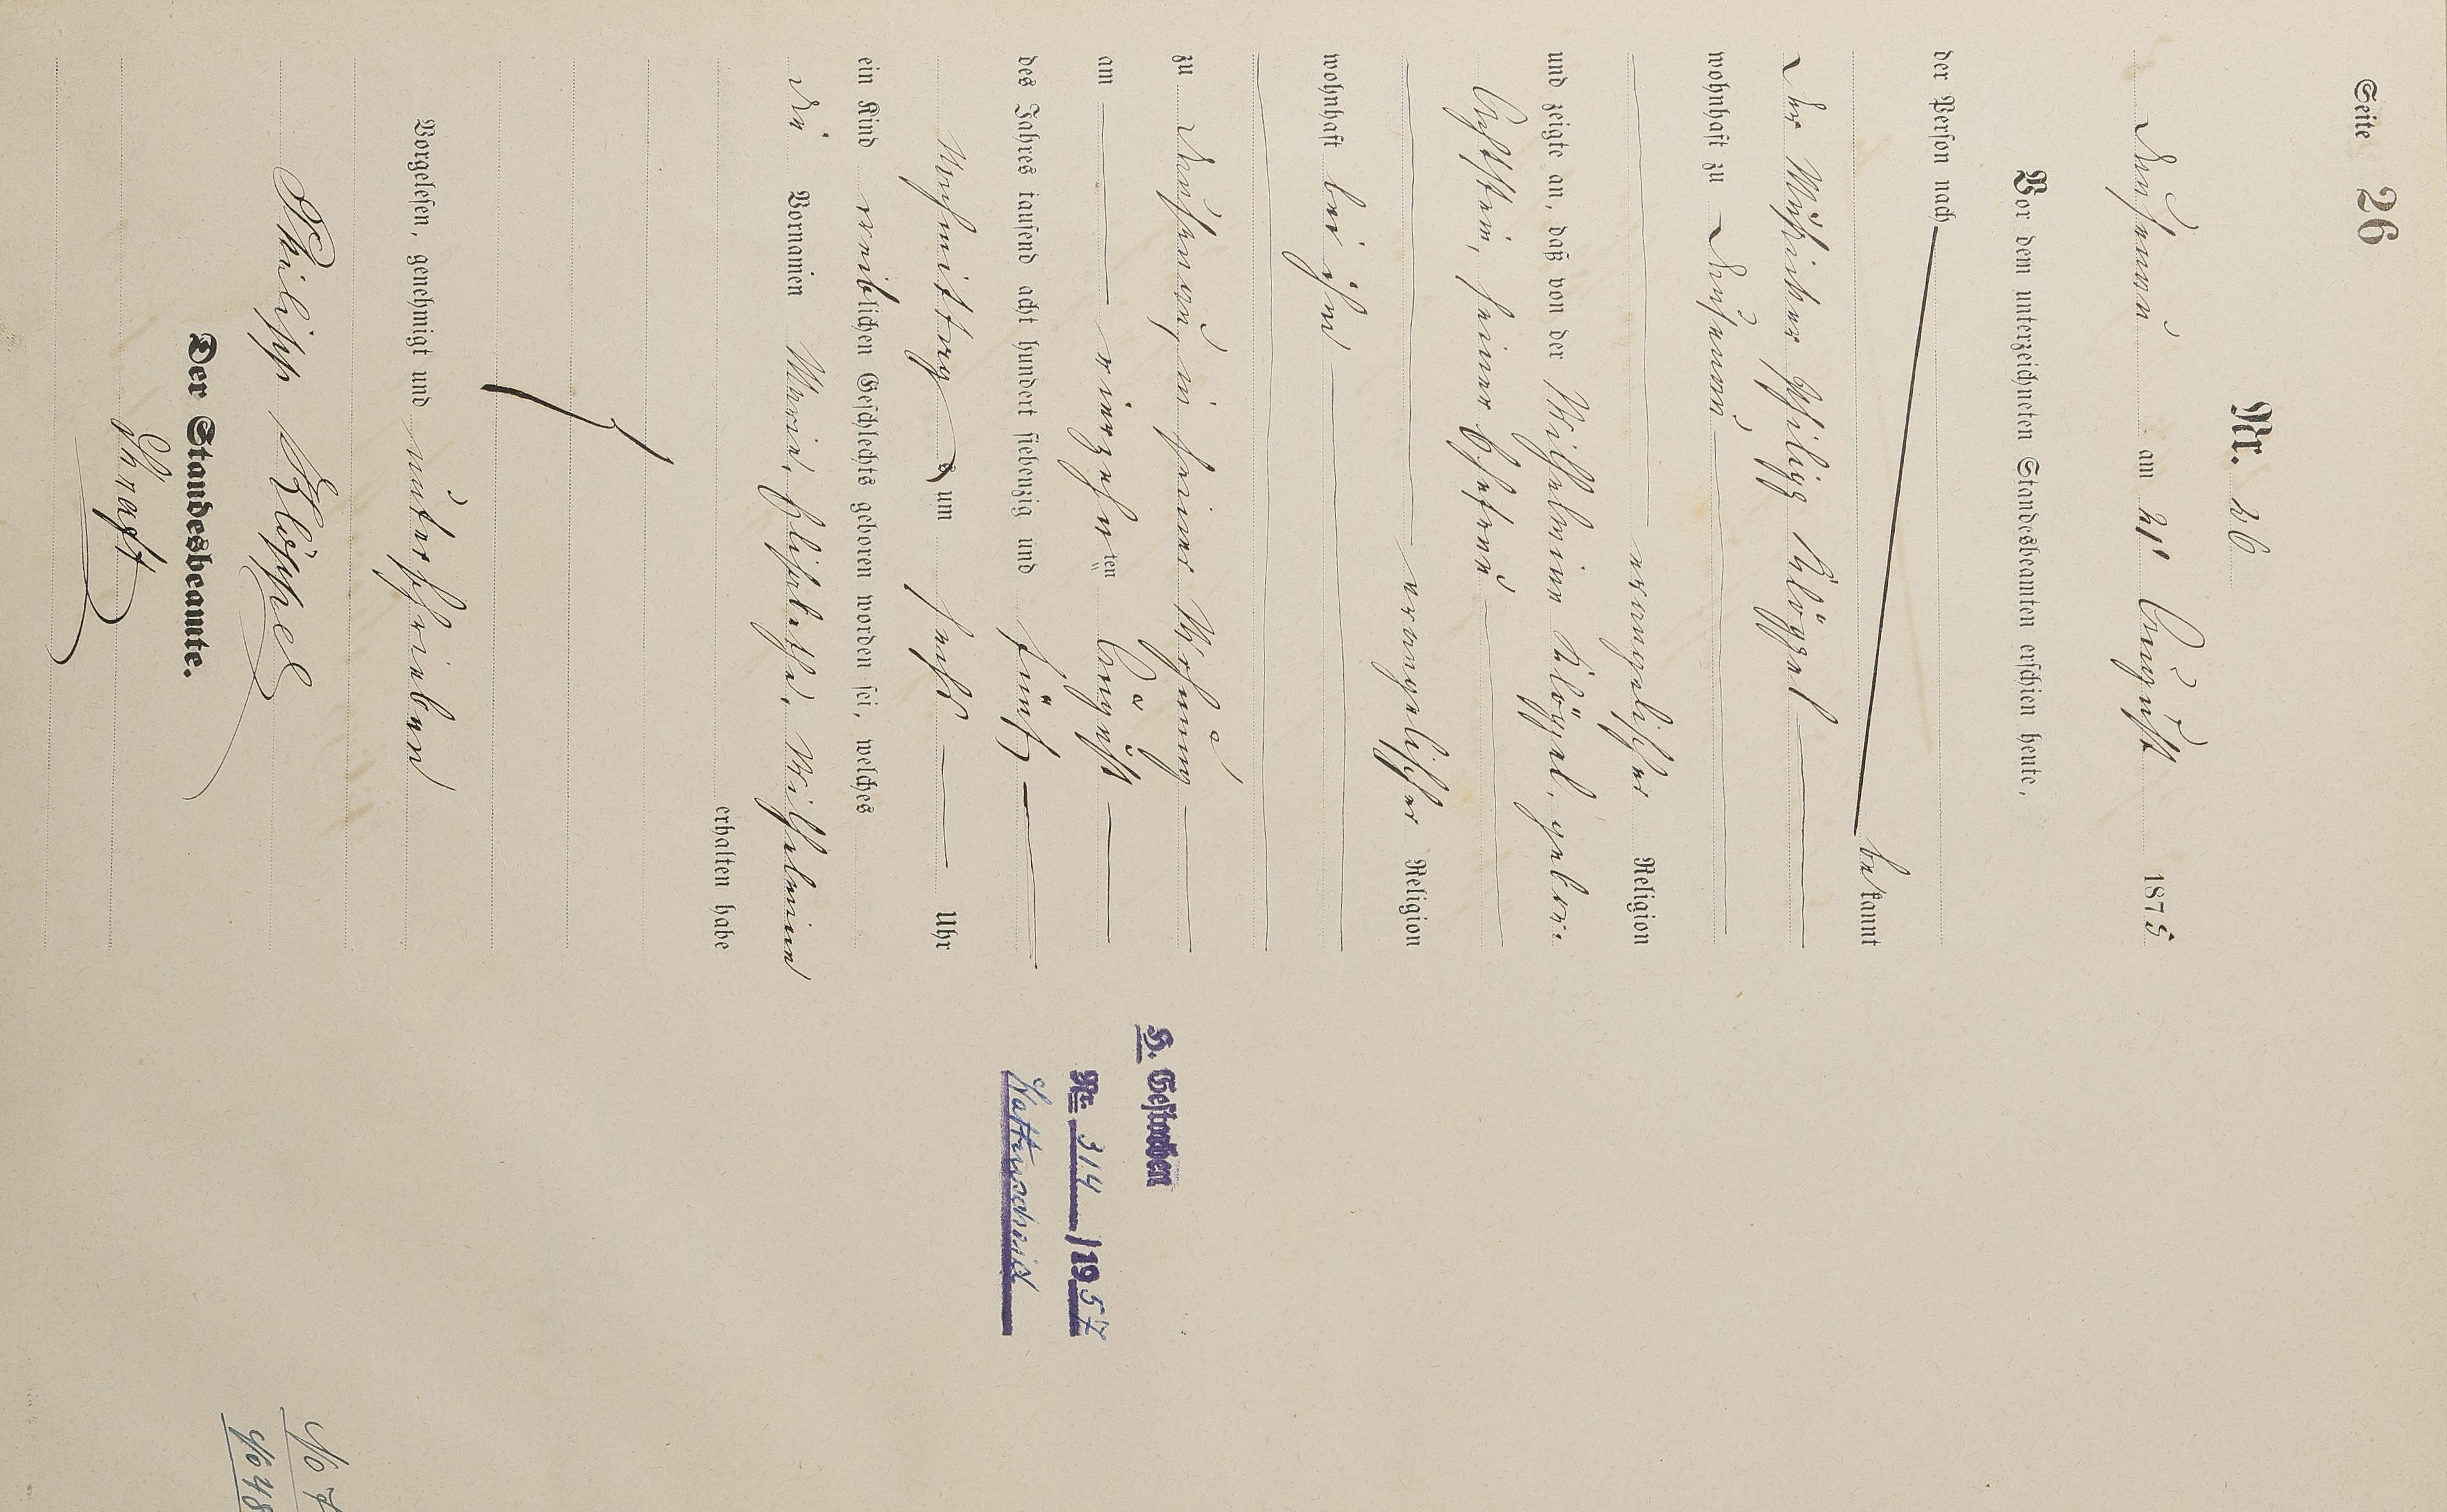 Seite 26
Nr. 26
am 21 August 1875
Vor dem unterzeichneten Standesbeamten erschien heute,
der Person nach
bekannt
der Philipp Klöppel
wohnhaft zu
evangelischer Religion
und zeigte an, daß von der Wilhelmine Klöppel, gebore
seiner Ehefrau
evangelischer Religion
wohnhaft bei ihm
zu in seiner Wohnung
am vierzehn ten August
des Jahres tausend acht hundert siebenzig und fünf
Nachmittag s um sechs Uhr
ein Kind weiblichen Geschlechts geboren worden sei, welches
die Vornamen Marie, Elisabetha, Wilhelmine
erhalten habe
Vorgelesen, genehmigt und unterschrieben
Philipp Klöppel
Der Standesbeamte.
Kraft
H. Gestorben
Nr. 314 /1957
Wattenscheid